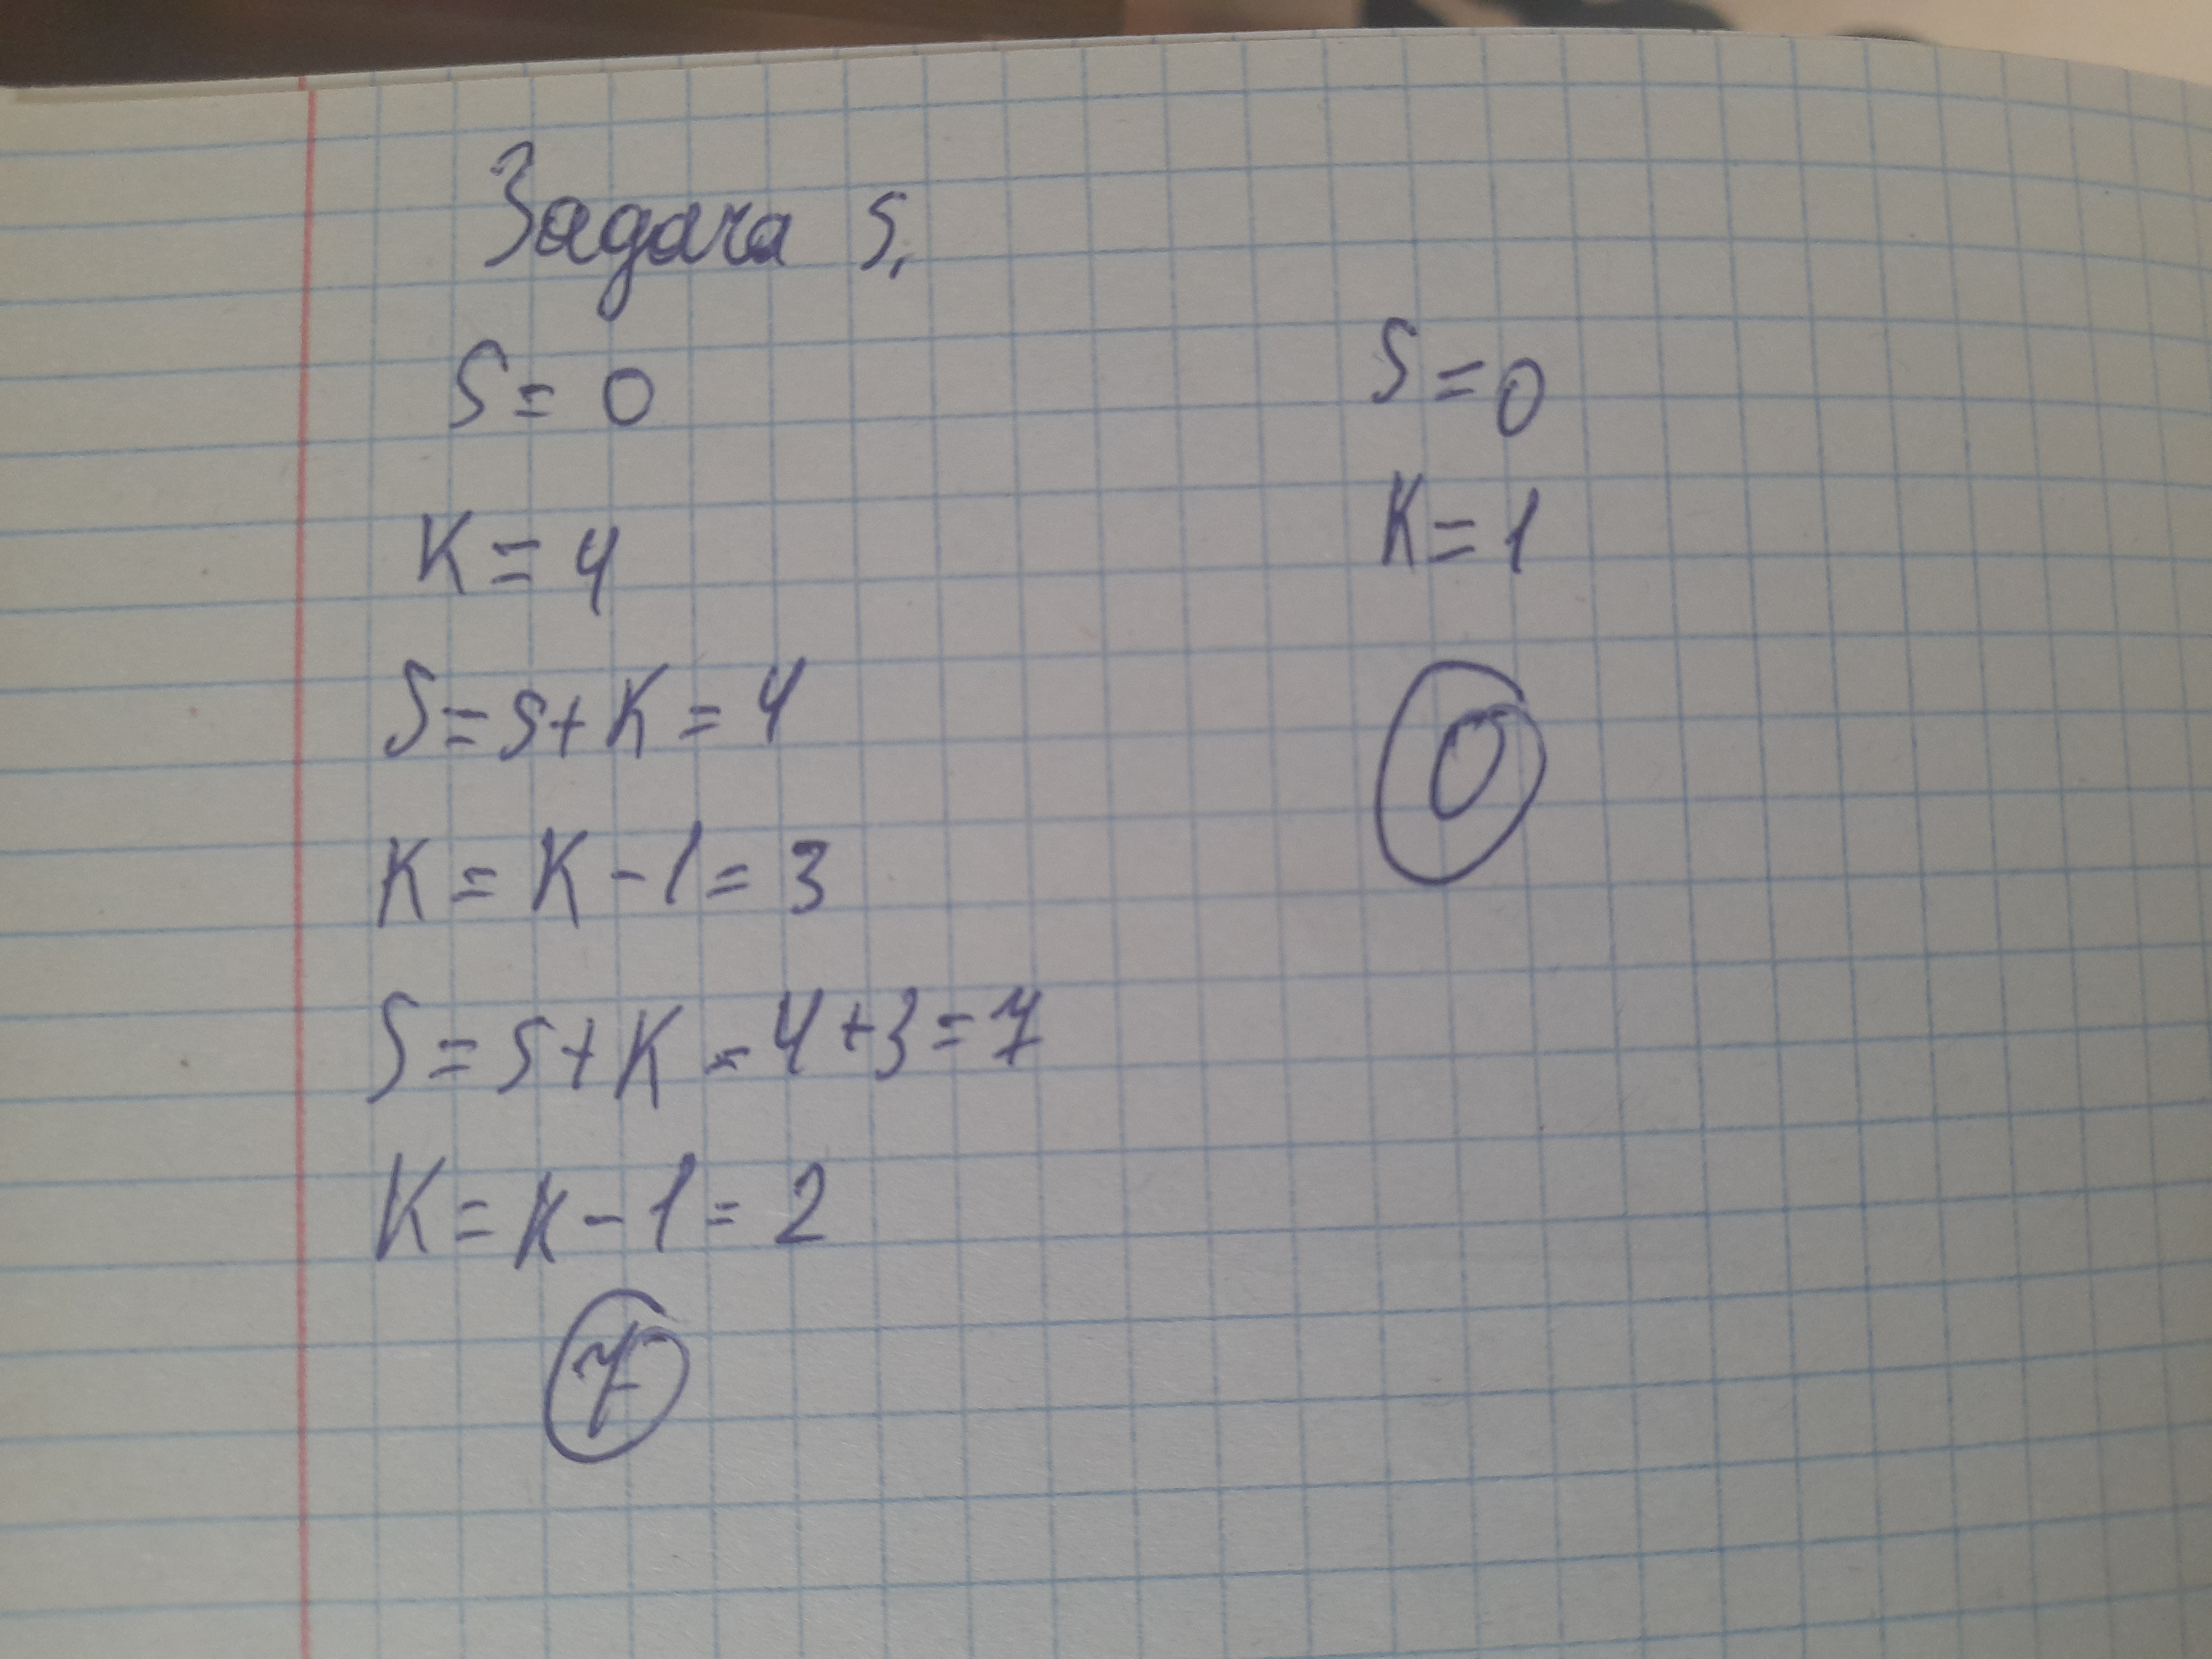 Задача 5.
S = 0
K = 4
S = S + K = 4
K = K - 1 = 3
S = S + K = 4 + 3 = 7
K = K - 1 = 2
7
S = 0
K = 1
0